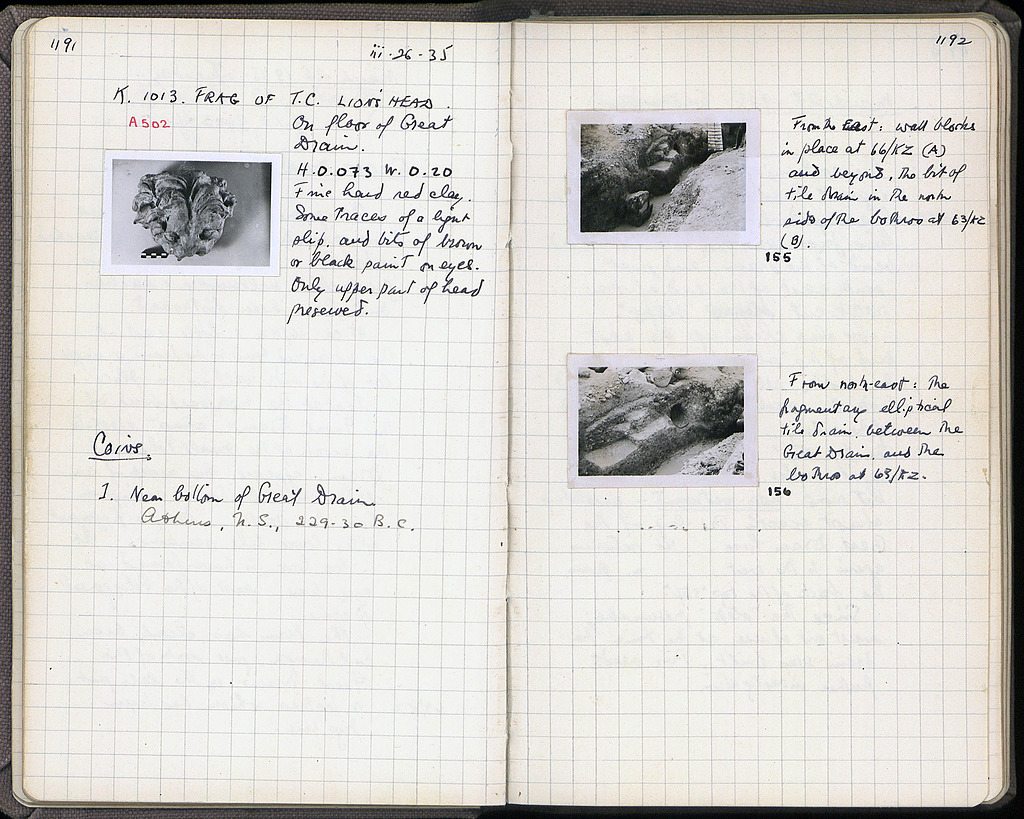 1191
iii-26-35
K. 1013. FRAG OF T.C. LION'S HEAD.
A 502
On floor of Great
Drain.
H. 0.073 W. 0.20
Fine hard red clay.
Some traces of a light
slip, and bits of brown
or black paint on eyes.
Only upper part of head
preserved.
Coins.
1. Near bottom of Great Drain
Athens, N.S., 229-30 B.C.
1192
From the East: wall blocks
in place at 66/KZ (A)
and beyond, the bit of
tile drain in the north
side of the bothros at 63/KZ
(B).
155
From north-east: The
fragmentary elliptical
tile drain, between the
Great Drain, and the
bothros at 63/KZ.
156